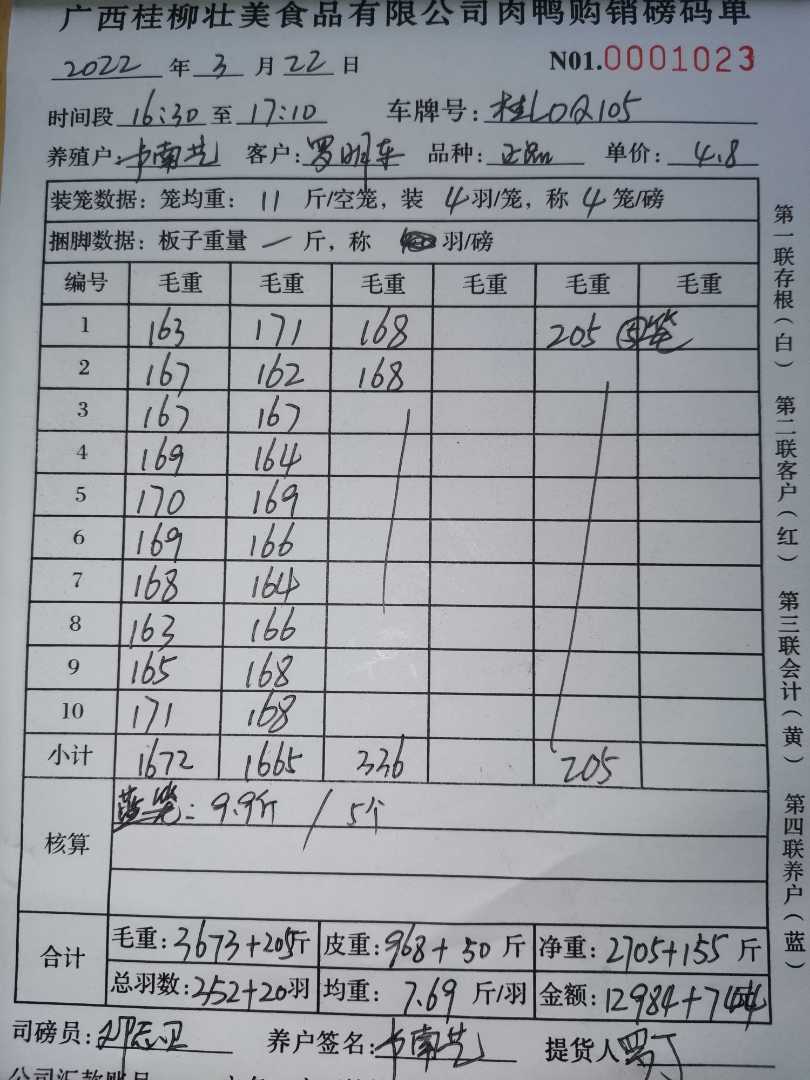 广西桂柳壮美食品有限公司肉鸭购销磅码单
2022 年 3 月 22 日 N01.0001023
时间段 16:30 至 17:10 车牌号: 桂LOQ105
养殖户: 卜南艺 客户: 罗明车 品种: 正品 单价: 4.8
装笼数据: 笼均重: 11 斤/空笼, 装 4 羽/笼, 称 4 笼/磅
捆脚数据: 板子重量 一 斤, 称 羽/磅
编号 毛重 毛重 毛重 毛重 毛重 毛重
1 163 171 168 205 ⑤笼
2 167 162 168
3 167 167
4 169 164
5 170 169
6 169 166
7 168 164
8 163 166
9 165 168
10 171 168
小计 1672 1665 336 205
核算 蓝笼: 9.9斤 / 5个
合计 毛重: 3673+205斤 皮重: 968+50 斤 净重: 2705+155 斤
总羽数: 252+20羽 均重: 7.69 斤/羽 金额: 12984+744
司磅员: 邓志卫 养户签名: 卜南艺 提货人 罗丁
公司汇款账号
第一联存根(白) 第二联客户(红) 第三联会计(黄) 第四联养户(蓝)